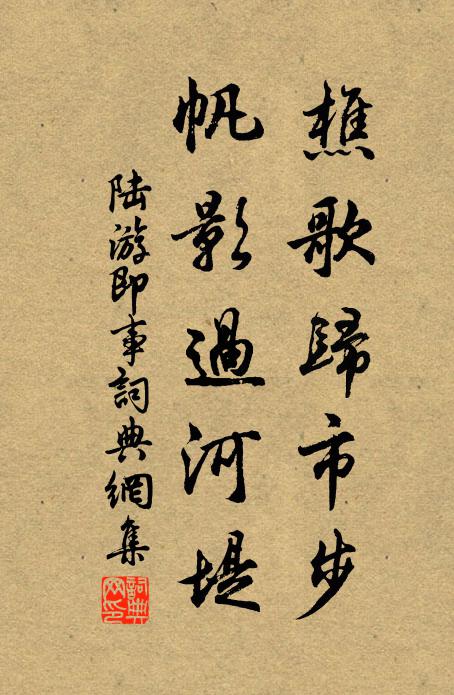 樵歌歸市步
帆影過河堤
陸游即事詞典網集
詞典網印